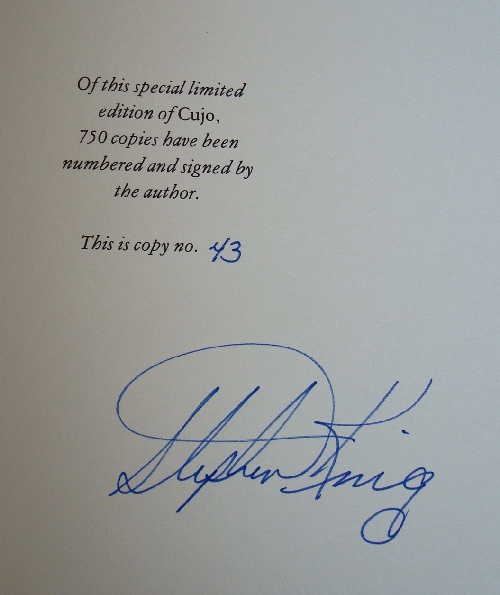 Of this special limited
edition of Cujo,
750 copies have been
numbered and signed by
the author.
This is copy no. 43
Stephen King